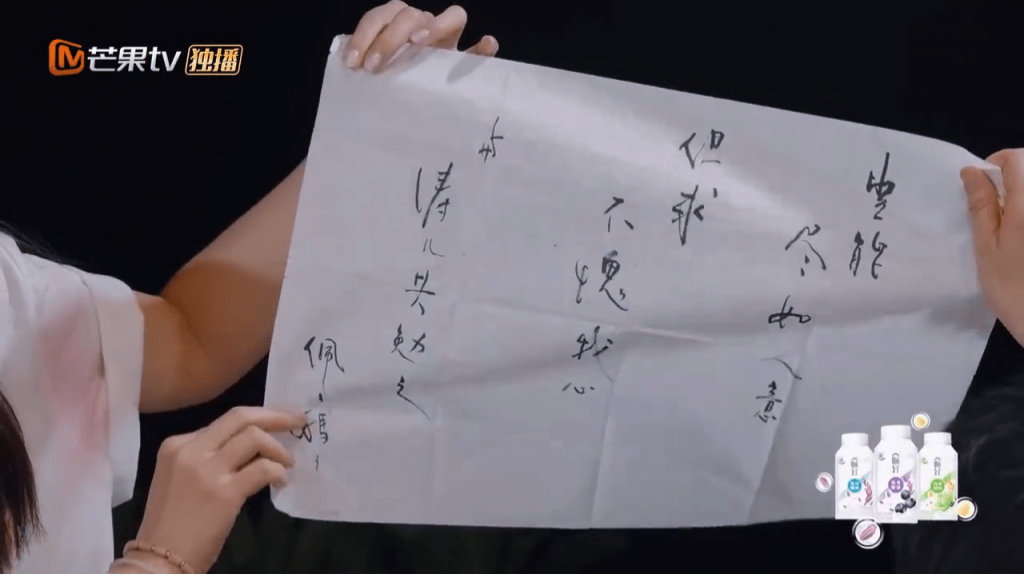 芒果tv 独播
岂能
尽如人意
但求
不愧我心
与
涛儿共勉之
佩、媽、